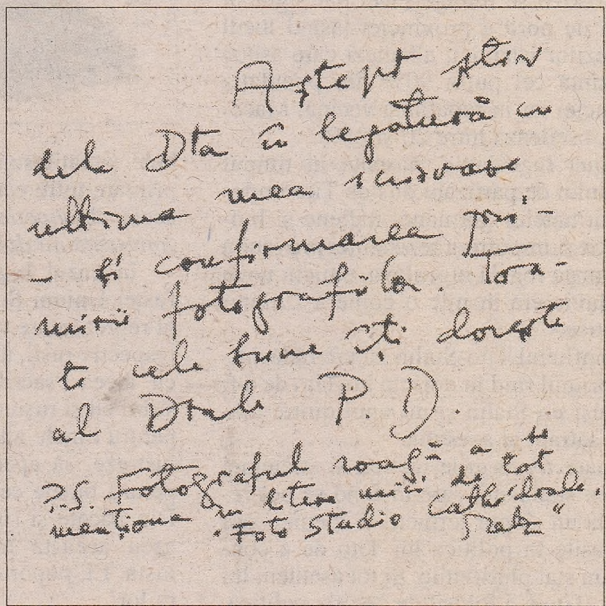 Aștept știri
dela Dta în legătură cu
ultima mea scrisoare
– și confirmarea pri-
mirii fotografiilor. Toa-
te cele bune îți dorește
al Dtale P D
P.S. Fotograful roagă a se
menționa în litere mici de tot
"Foto Studio Cathédrale,
Metz"